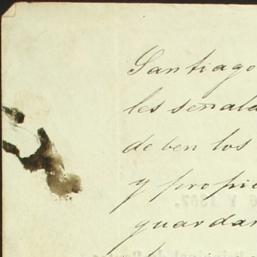 Santiago
les señala
deben los
y propie
guardar